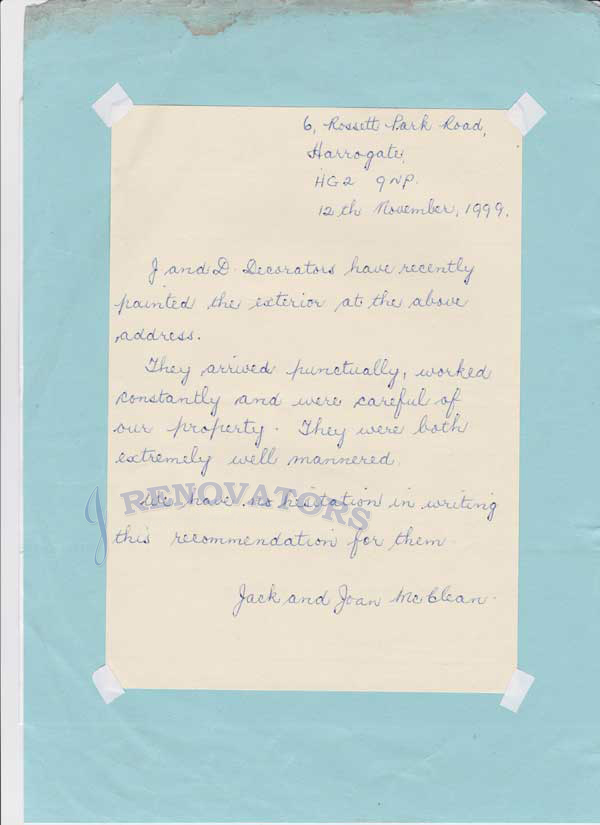 6, Rossett Park Road,
Harrogate,
HG2 9NP.
12th November, 1999.
J and D Decorators have recently
painted the exterior at the above
address.
They arrived punctually, worked
constantly and were careful of
our property. They were both
extremely well mannered.
We have no hesitation in writing
J RENOVATORS
this recommendation for them.
Jack and Joan McClean.